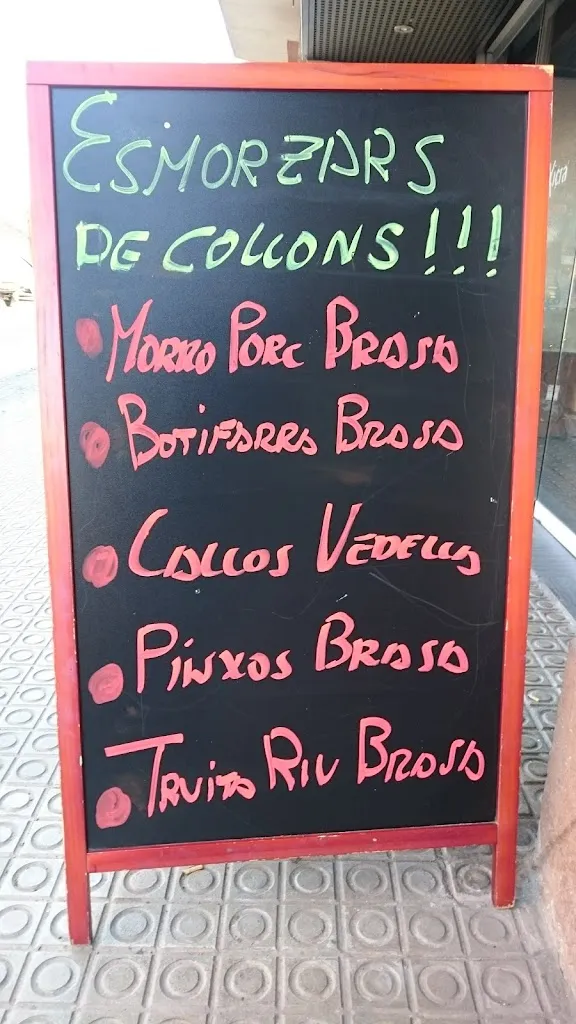 ESMORZARS
DE COLLONS!!!
• MORRO PORC BRASA
• BOTIFARRA BRASA
• CALLOS VEDELLA
• PINXOS BRASA
• TRUITA RIU BRASA